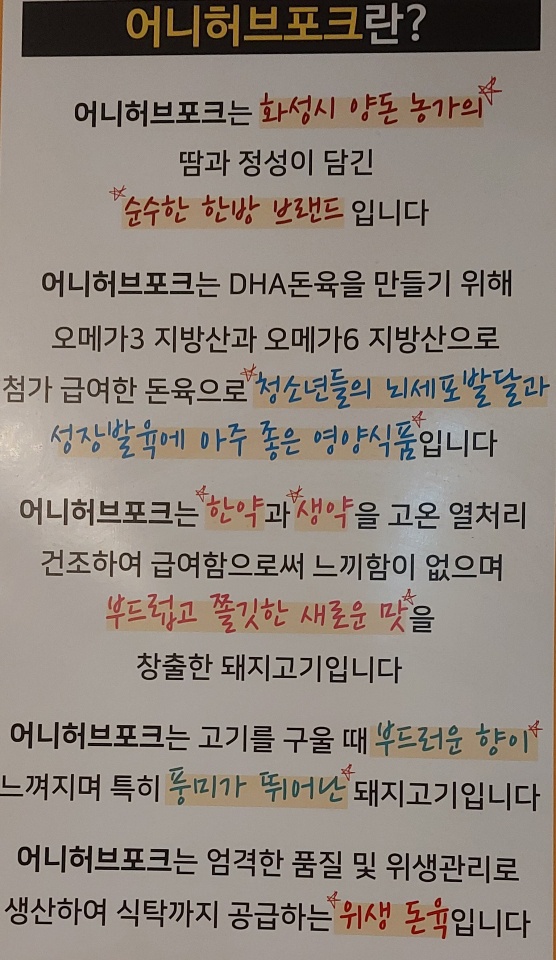 어니허브포크란?
어니허브포크는 화성시 양돈 농가의
땀과 정성이 담긴
순수한 한방 브랜드 입니다
어니허브포크는 DHA돈육을 만들기 위해
오메가3 지방산과 오메가6 지방산으로
첨가 급여한 돈육으로 청소년들의 뇌세포발달과
성장발육에 아주 좋은 영양식품입니다
어니허브포크는 한약과 생약을 고온 열처리
건조하여 급여함으로써 느끼함이 없으며
부드럽고 쫄깃한 새로운 맛을
창출한 돼지고기입니다
어니허브포크는 고기를 구울 때 부드러운 향이
느껴지며 특히 풍미가 뛰어난 돼지고기입니다
어니허브포크는 엄격한 품질 및 위생관리로
생산하여 식탁까지 공급하는 위생 돈육입니다